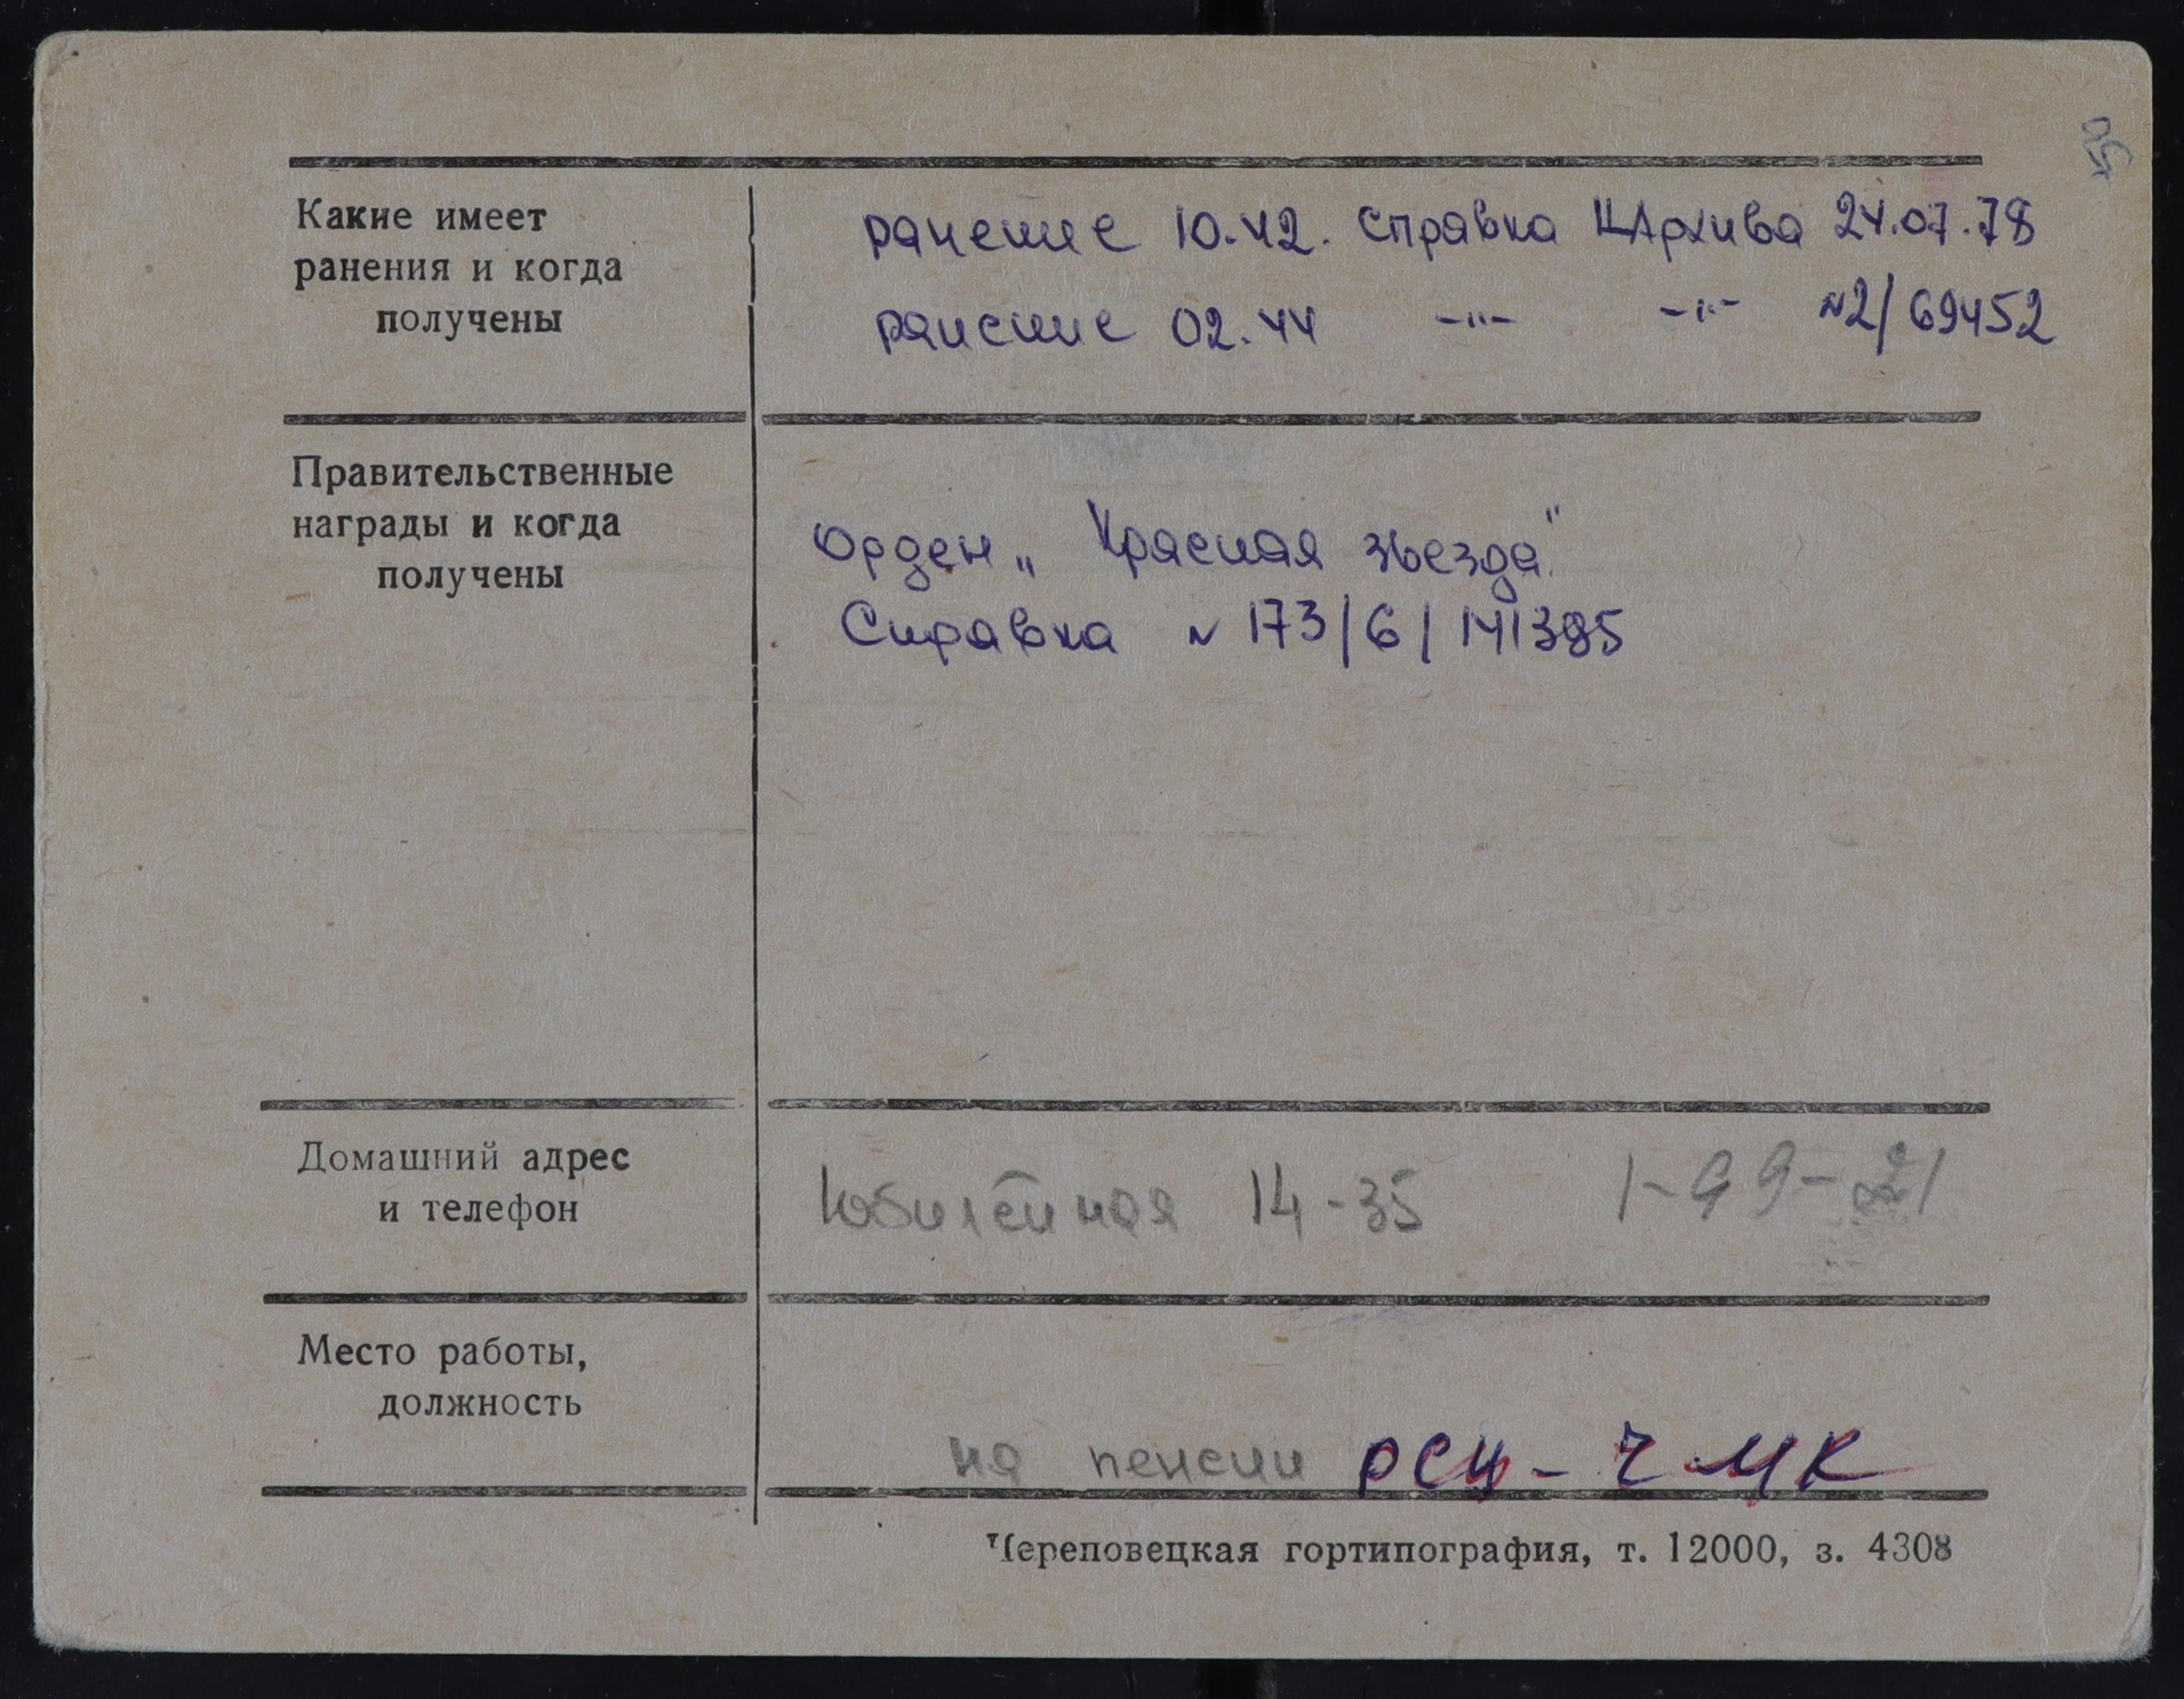 Какие имеет
ранения и когда
получены
ранение 10.42. справка ЦАрхива 24.07.78
ранение 02.44 -"- -"- №2/69452
Правительственные
награды и когда
получены
Орден „Красная звезда"
Справка № 173/6/141395
Домашний адрес
и телефон
Юбилейная 14-35 1-99-21
Место работы,
должность
на пенсии РСЦ-ЧМК
Череповецкая гортипография, т. 12000, з. 4308